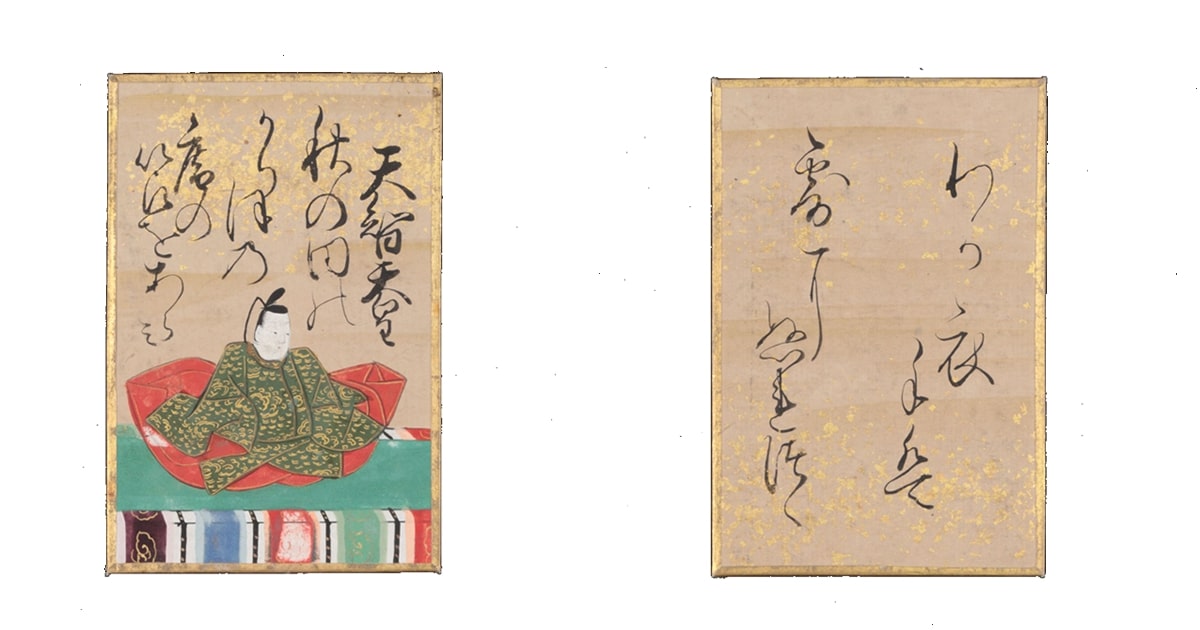 天智天皇
秋の田の
かりほ乃
庵の
苫をあらみ
わか衣
手は
露に
ぬれつゝ